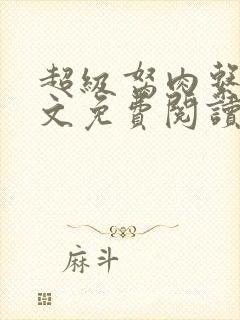 超级驽肉
文免费阅读
麻斗